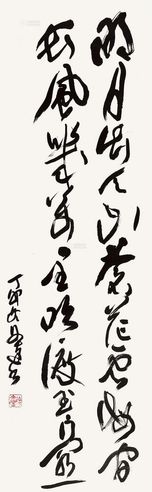 明月出天山蒼茫雲海間
長風幾萬里吹度玉門關
丁卯